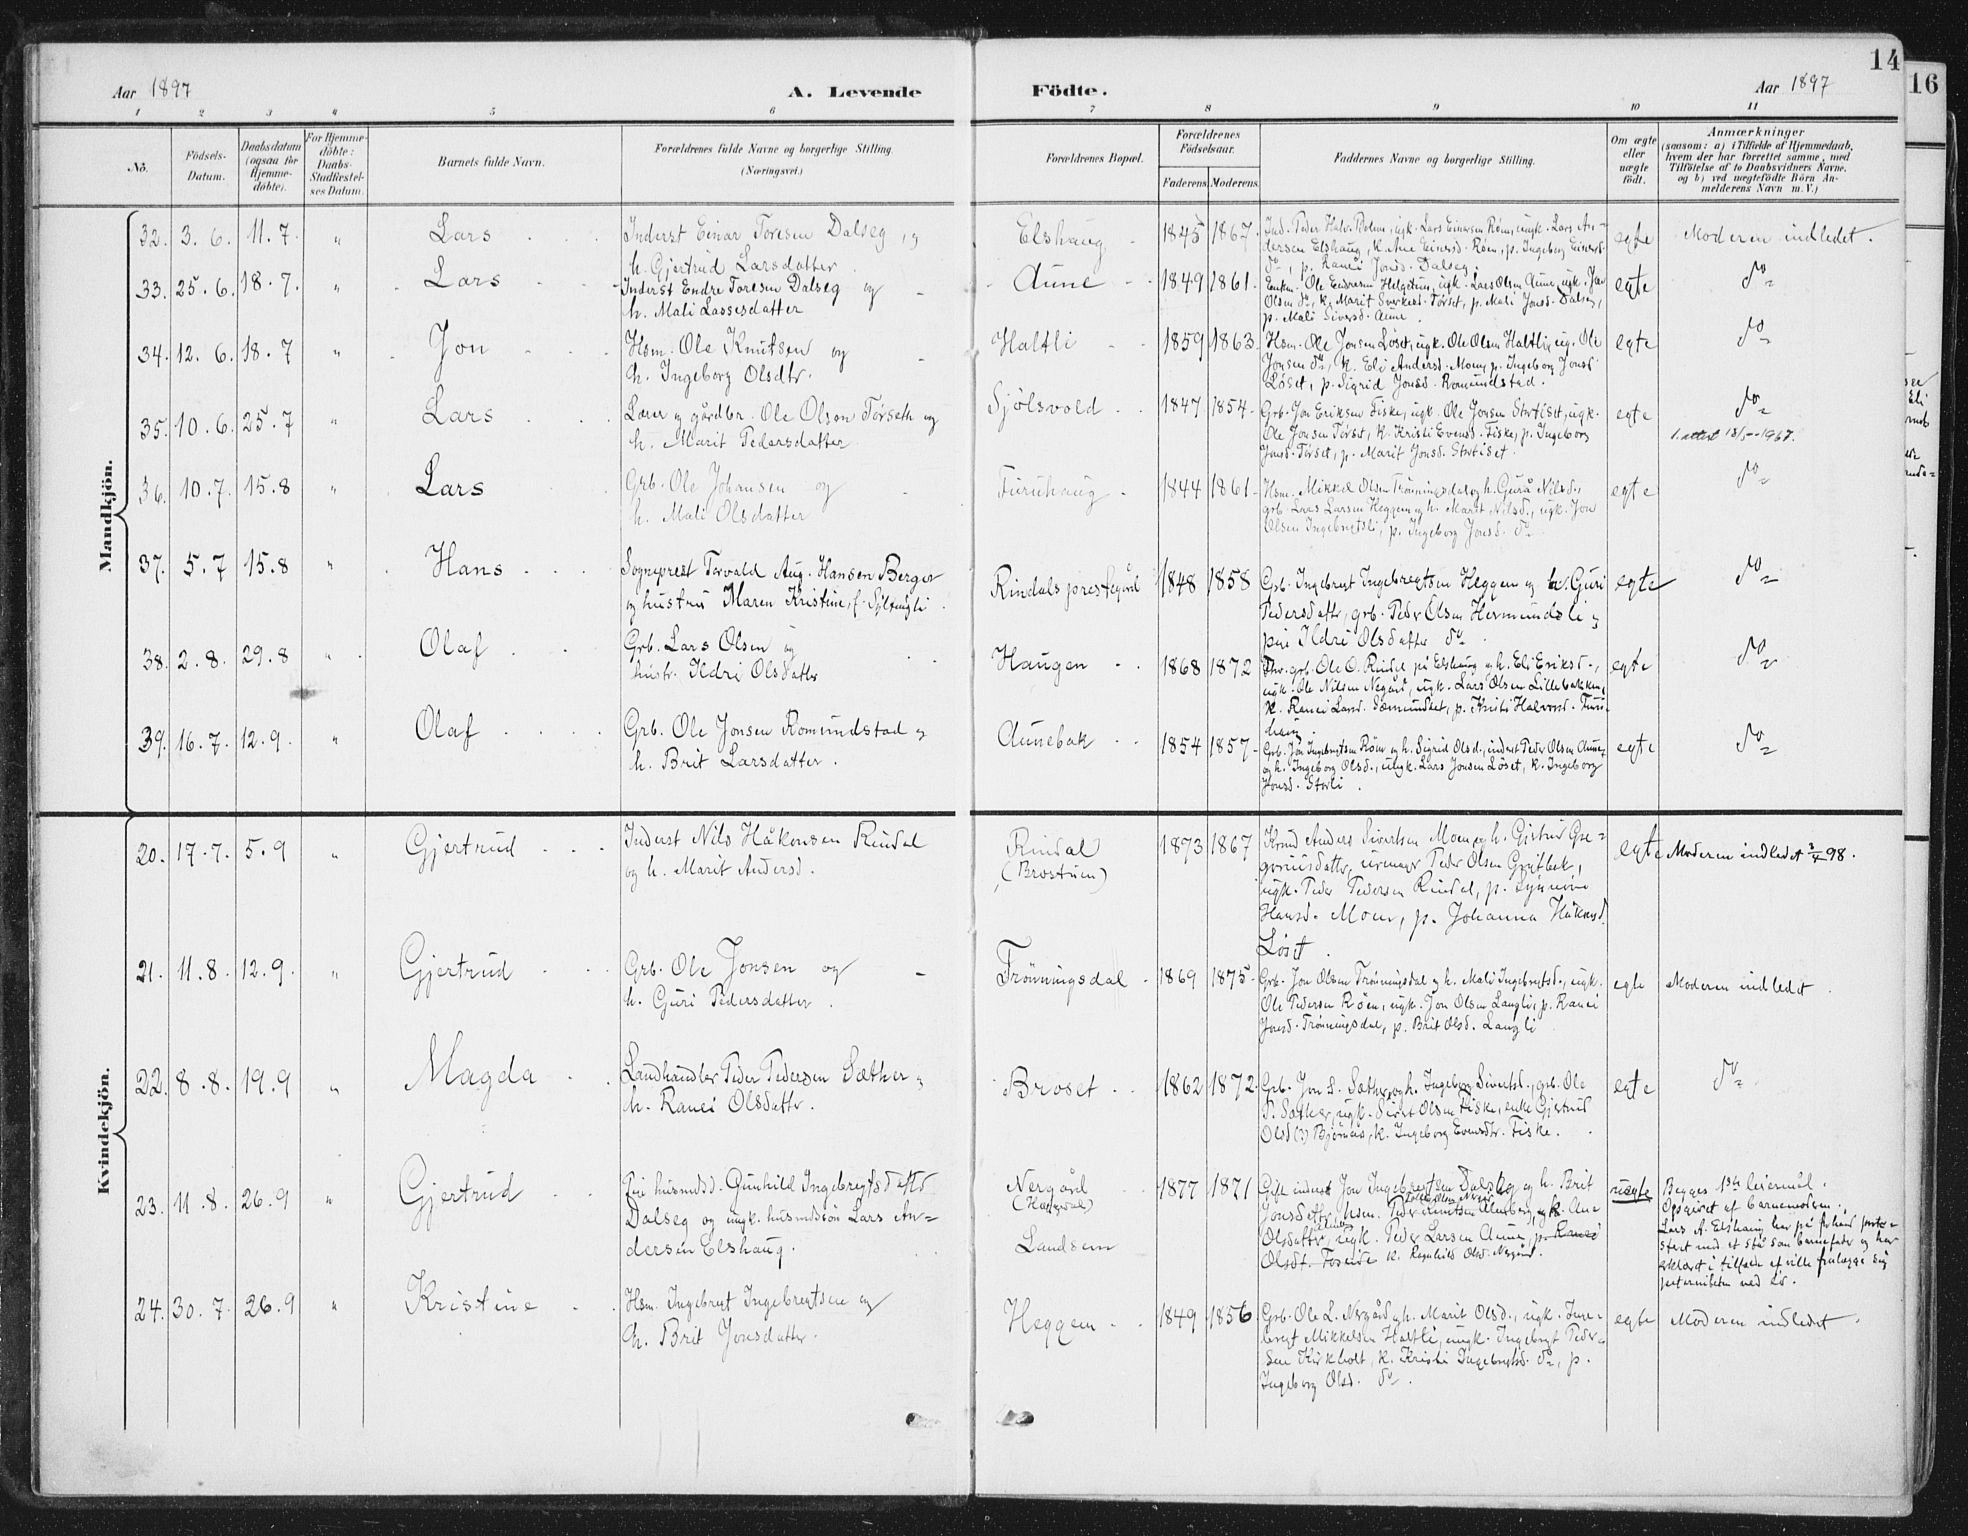 14
16
Aar 1897
A. Levende
Födte.
Aar 1897
1 2 3 4 5 6 7 8 9 10 11
No.
Födsels-
Datum.
Daabsdatum
(ogsaa for
Hjemme-
döbte).
For Hjemme-
döbte:
Daabs-
Stadfæstel-
ses Datum.
Barnets fulde Navn.
Forældrenes fulde Navne og borgerlige Stilling.
(Næringsvei.)
Forældrenes Bopæl.
Forældrenes
Födselsaar.
Faderens. Moderens.
Faddernes Navne og borgerlige Stilling.
Om ægte
eller
uægte
født.
Anmærkninger
(saasom: a) i Tilfælde af Hjemmedaab,
hvem der har forrettet samme, med
Tilföielse af to Daabsvidners Navne,
og b) ved uægtefödte Börn An-
melderens Navn m. V.)
Mandkjön.
32. 3. 6. 11. 7. " Lars
Inderst Einar Toresen Dalseg, og
h. Gjertrud Larsdatter
Elshaug 1845 1867
dersen Elshaug, k. Ane Einersd. Røen, p. Ingeborg Einersd.
do, p. Ranei Jonsd. Dalseg.
egte Moderen indledet.
33. 25. 6. 18. 7. " Lars
Inderst Endre Toresen Dalseg og
h. Mali Lassesdatter
Aune 1849 1861
Enkm. Ole Endresen Helgetun, ugk. Lars Olsen Aune, ugk. Jon
Olsen do, k. Marit Sverkesd. Tørset, p. Mali Jonsd. Dalseg,
p. Mali Siversd. Aune.
egte do
34. 12. 6. 18. 7 " Jon
Hsm. Ole Knutsen og
h. Ingeborg Olsdtr.
Haltli 1859 1863
Hsm. Ole Jonsen Løset, ugk. Ole Olsen Haltli, ug. Ole
Jonsen do, k. Eli Andersd. Moen, p. Ingeborg Jonsd
Løset, p. Sigrid Jonsd. Romundstad.
egte do
35. 10. 6. 25. 7 " Lars
Lærer og gårdbr. Ole Olsen Tørseth og
h. Marit Pedersdatter
Sjølsvold 1847 1854
Grb. Jon Eriksen Fiske, ugk. Ole Jonsen Stortiset, ugk.
Ole Jonsen Tørset, k. Kristi Evensd. Fiske, p. Ingeborg
Jonsd. Tørset, p. Marit Jonsd. Stortiset.
egte do
1. attest 18/5-1967.
36. 10. 7. 15. 8 " Lars
Grb. Ole Johansen og
h. Mali Olsdatter
Furuhaug 1844 1861
Hsm. Mikkel Olsen Trønningsdal og h. Gurå Nilsd.,
grb. Lars Larsen Heggem og h. Marit Nilsd., ugk. Jon
Olsen Ingebrigtsli, p. Ingeborg Jonsd. do
egte do
37. 5. 7 15. 8 " Hans
Sogneprest Torvald Aug. Hansen Berger
og hustru Maren Kristine, f.
Rindals prestegård 1848 1858
Grb. Ingebregt Ingebregtsen Heggem og h. Guri
Pedersdatter, grb. Peder Olsen Hermundsli og
pie Ildri Olsdatter do
egte do
38. 2. 8. 29. 8 " Olaf
Grb. Lars Olsen og
hustr. Ildri Olsdatter
Haugen 1868 1872
Fhv. grb. Ole O. Rindal på Elshaug og h. Eli Eriksd.,
ugk. Ole Nilsen Negård, ugk. Lars Olsen Lillebakken,
k. Ranei Larsd. Sæmundset, p. Kristi Halvorsd. Furu-
haug.
egte do
39. 16. 7. 12. 9. " Olaf
Grb. Ole Jonsen Romundstad og
h. Brit Larsdatter.
Aunebak 1854 1857
Grb. Jon Ingebrigtsen Röen og h. Sigrid Olsd., inderst Peder Olsen Aune,
og h. Ingeborg Olsd., ungk. Lars Jonsen Løset, k. Ingeborg
Jonsd. Storli.
egte do
Kvindekjön.
20. 17. 7. 5. 9 " Gjertrud
Inderst Nils Håkonsen Rindal
og h. Marit Andersd.
Rindal
(Brostuen)
1873 1867
Krmd Anders Sivertsen Moen og h. Gjertrud Gre-
goriusdatter, urmager Peder Olsen Grytbak,
ugk. Peder Pedersen Rindal, p. Synnøve
Hansd. Moen, p. Johanna Håkonsd
Løset.
egte Moderen indledet 3/4 98.
21. 11. 8. 12. 9. " Gjertrud
Grb. Ole Jonsen og
h. Guri Pedersdatter.
Trønningsdal 1869 1875
Grb. Jon Olsen Trønningsdal og h. Mali Ingebregtsd., ugk.
Ole Pedersen Röen, ugk. Jon Olsen Langli, p. Ranei
Jonsd. Trønningsdal, p. Brit Olsd. Langli
egte Moderen indledet.
22. 8. 8. 19. 9 " Magda
Landhandler Peder Pedersen Sæther og
h. Ranei Olsdatter.
Broset 1862 1872
Grb. Jon L. Sæther og h. Ingeborg Sivertsd., grb. Ole
P. Sæther, ugk. Sivert Olsen Fiske, enke Gjertrud
Olsd (?) Bjørnås, k. Ingeborg Evensdtr. Fiske.
egte do
23. 11. 8. 26. 9 " Gjertrud
Pie husmdsd. Gunhild Ingebregtsdatter
Dalseg og ungk. husmdssøn Lars An-
dersen Elshaug.
Nergård
Landsem
1877 1871
Gift inderst Jon Ingebregtsen Dalseg og h. Brit
Jonsdatter,
Olsdatter, ugk. Peder Larsen Aune, p. Ranei
Olsdt. Foseide k. Ragnhild Olsd. Nergård.
uegte Begges 1ste leiermål.
Opgivet af barnemoderen.
Lars A. Elshaug har på forhånd prote-
stert mod at stå som barnefader og har
erklæret i tilfælde af ville fralægge sig
paterniteten ved ed.
24. 30. 7. 26. 9 " Kristine
Hsm. Ingebregt Ingebregtsen og
h. Brit Jonsdatter.
Heggem 1849 1856
Grb. Ole L. Nergård og h. Marit Olsd., ugk. Inge-
bregt Mikkelsen Haltli, ungk. Ingebregt Peder-
sen Kirkholt, k. Kristi Ingebregtsd. do, p.
Ingeborg Olsd. do.
egte Moderen indledet.